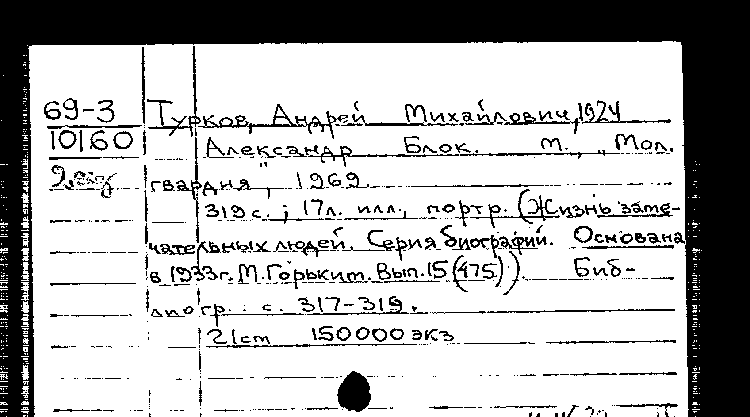 69-3 Турков, Андрей Михайлович, 1924
10160 Александр Блок. М., „Мол.
гвардия", 1969.
319 с.; 17л. илл., портр. (Жизнь заме-
чательных людей. Серия биографий. Основана
в 1933г. М. Горьким. Вып. 15 (475)). Биб-
лиогр.: с. 317-319.
21cm 150000 экз